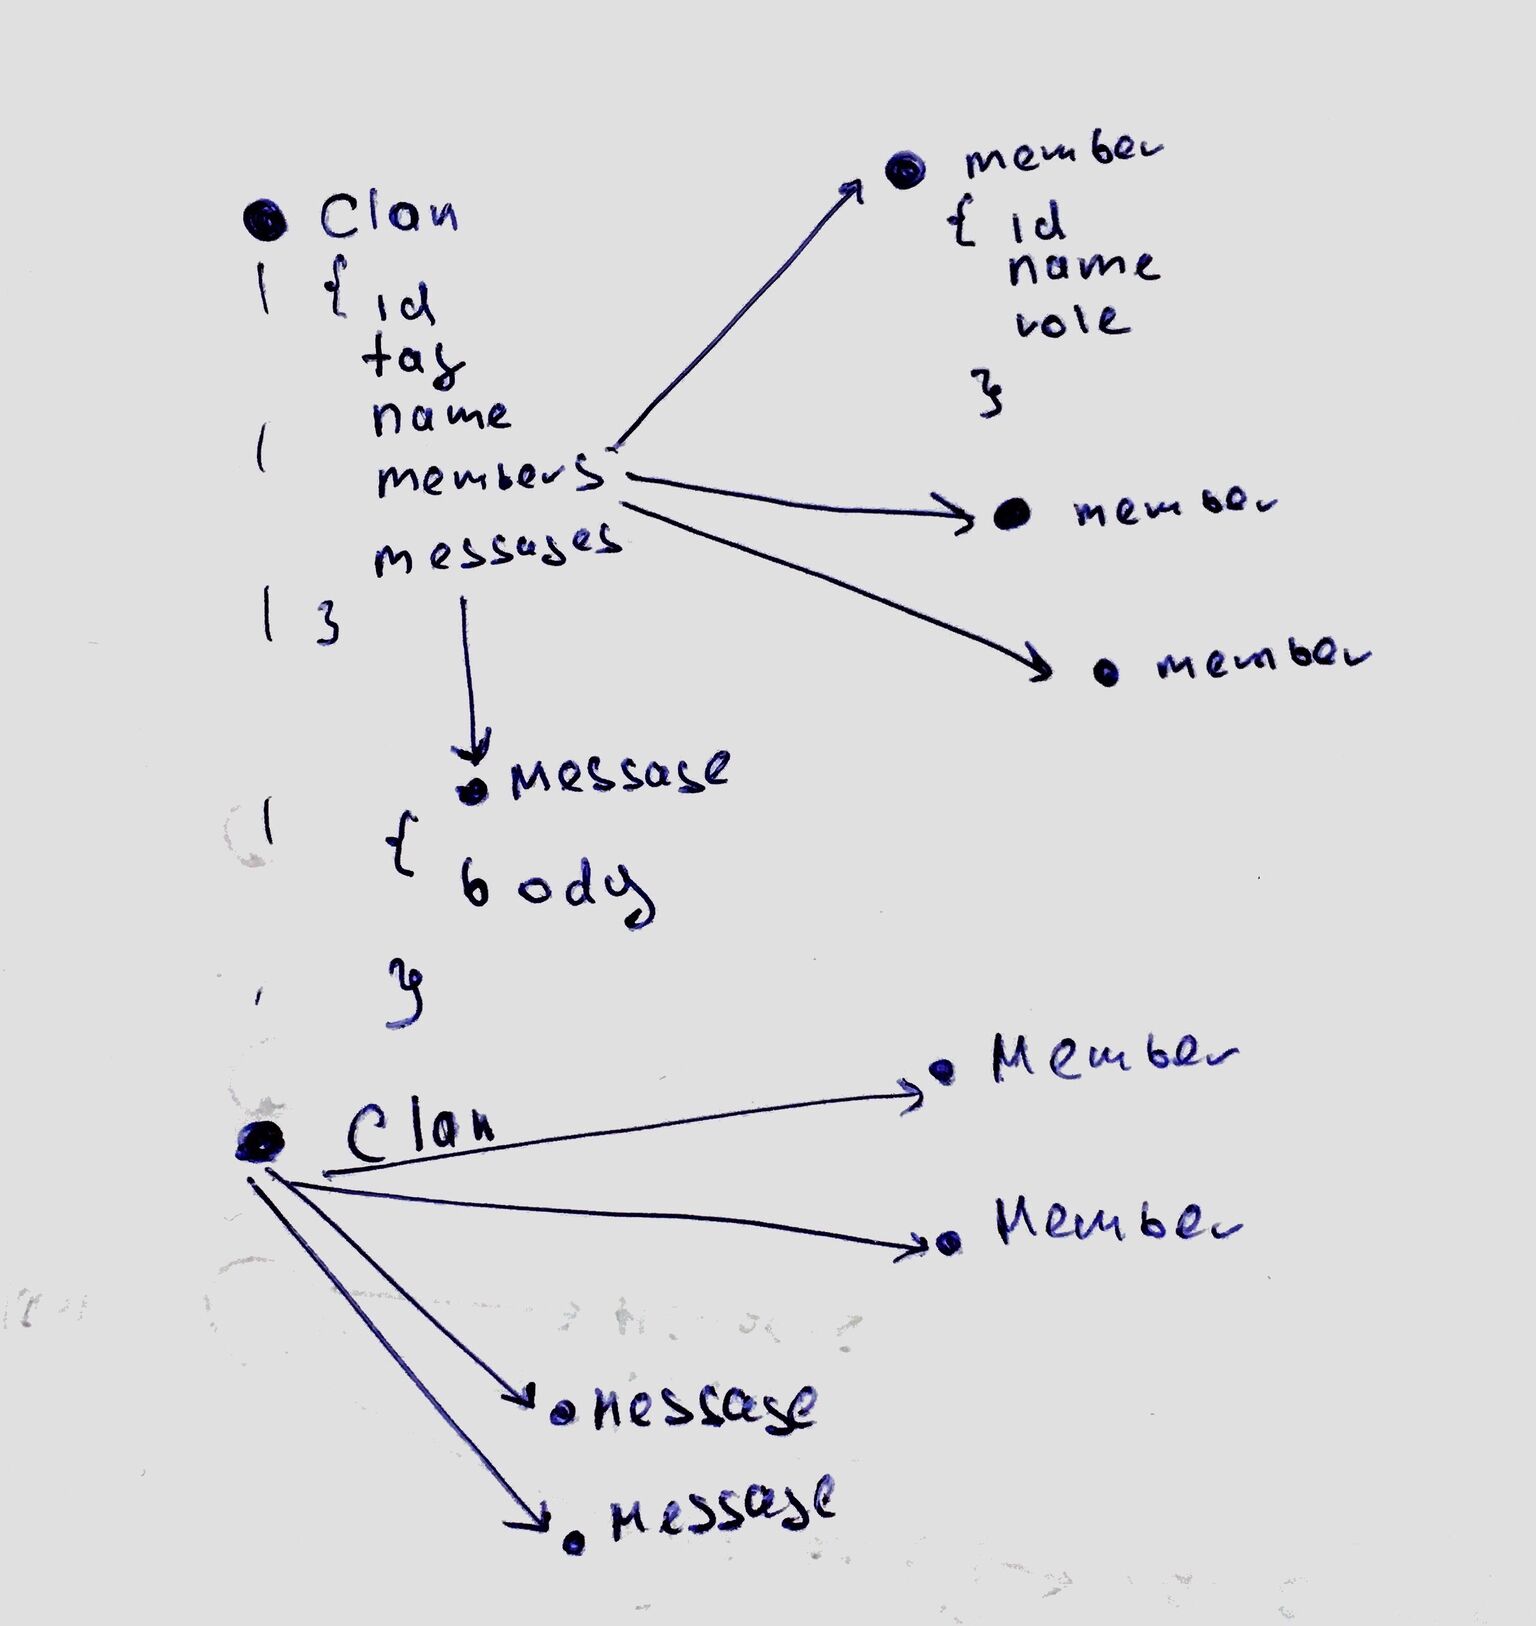 Clan
{ id
tag
name
members
messages
}
member
{ id
name
role
}
member
member
Message
{
body
}
Clan
Member
Member
Message
Message